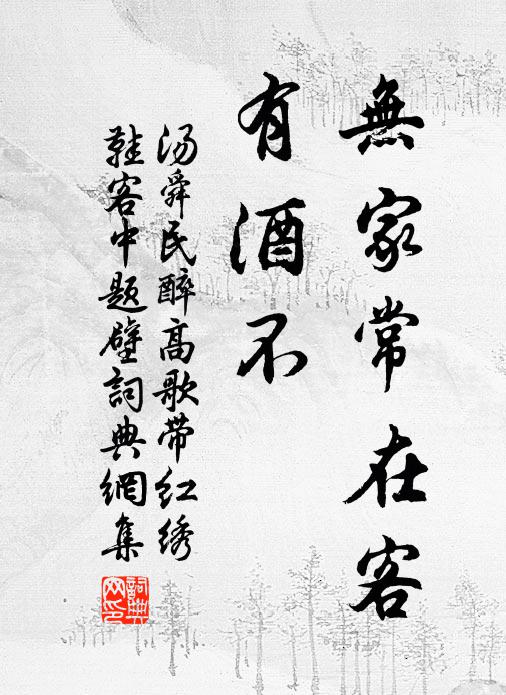 無家常在客
有酒不
汤舜民醉高歌带红绣
鞋客中题壁詞典網集